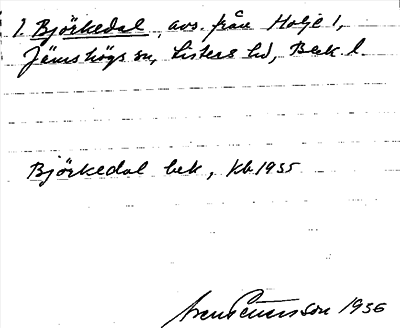 1. Björkedal, avs. från Holje 1,
Jämshögs sn, Listers hd, Blek. l.
Björkedal bek, Kb 1955
1956